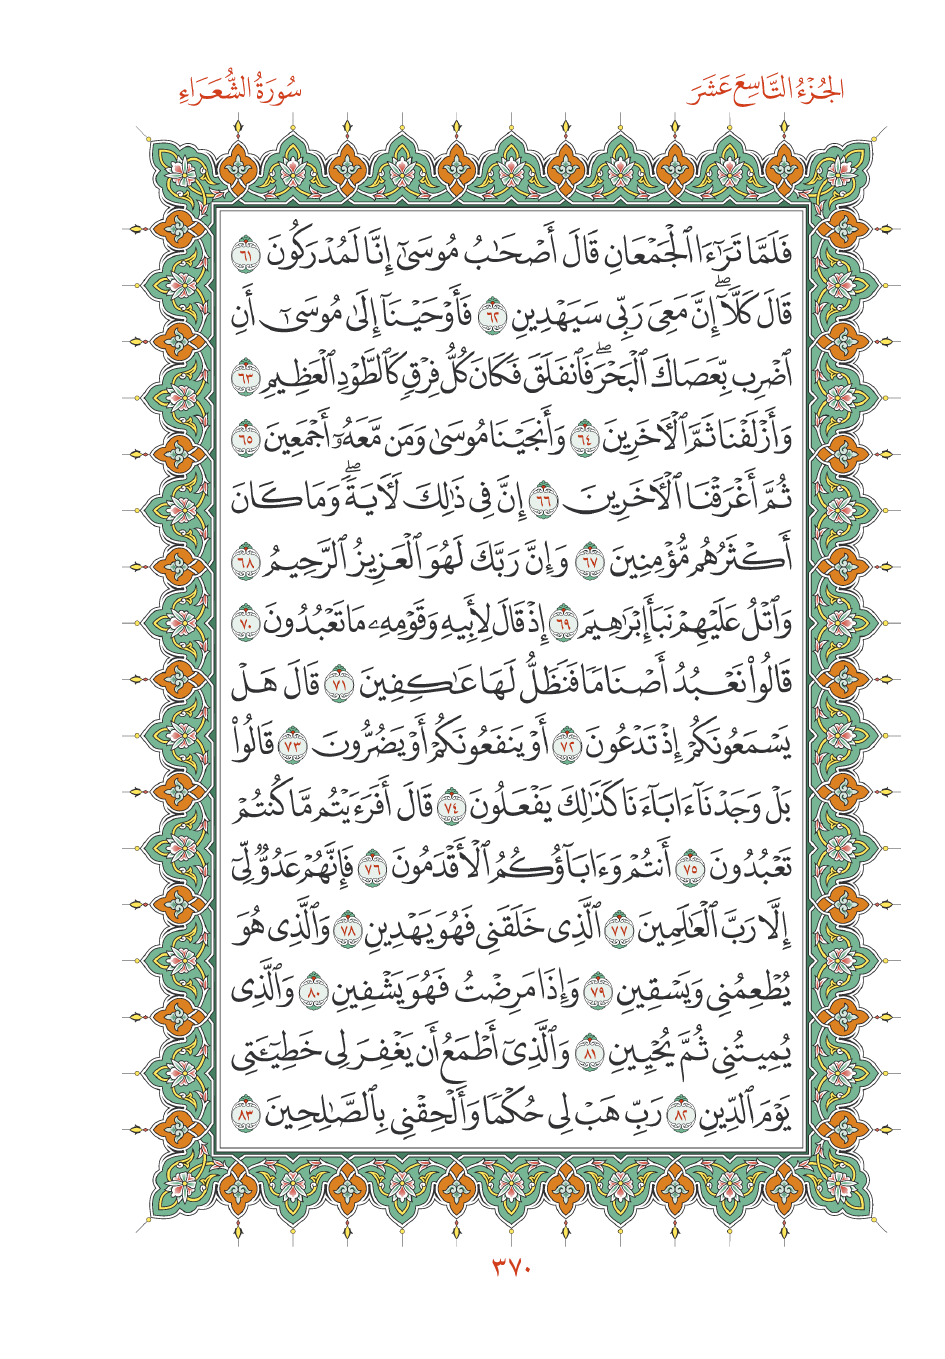 الجُزْءُ التَّاسِعَ عَشَرَ
سُورَةُ الشُّعَرَاءِ
فَلَمَّا تَرَٰٓءَا ٱلْجَمْعَانِ قَالَ أَصْحَٰبُ مُوسَىٰٓ إِنَّا لَمُدْرَكُونَ ٦١
قَالَ كَلَّآۖ إِنَّ مَعِىَ رَبِّى سَيَهْدِينِ ٦٢ فَأَوْحَيْنَآ إِلَىٰ مُوسَىٰٓ أَنِ
ٱضْرِب بِّعَصَاكَ ٱلْبَحْرَۖ فَٱنفَلَقَ فَكَانَ كُلُّ فِرْقٍ كَٱلطَّوْدِ ٱلْعَظِيمِ ٦٣
وَأَزْلَفْنَا ثَمَّ ٱلْءَاخَرِينَ ٦٤ وَأَنجَيْنَا مُوسَىٰ وَمَن مَّعَهُۥٓ أَجْمَعِينَ ٦٥
ثُمَّ أَغْرَقْنَا ٱلْءَاخَرِينَ ٦٦ إِنَّ فِى ذَٰلِكَ لَءَايَةًۖ وَمَا كَانَ
أَكْثَرُهُم مُّؤْمِنِينَ ٦٧ وَإِنَّ رَبَّكَ لَهُوَ ٱلْعَزِيزُ ٱلرَّحِيمُ ٦٨
وَٱتْلُ عَلَيْهِمْ نَبَأَ إِبْرَٰهِيمَ ٦٩ إِذْ قَالَ لِأَبِيهِ وَقَوْمِهِۦ مَا تَعْبُدُونَ ٧٠
قَالُوا۟ نَعْبُدُ أَصْنَامًا فَنَظَلُّ لَهَا عَٰكِفِينَ ٧١ قَالَ هَلْ
يَسْمَعُونَكُمْ إِذْ تَدْعُونَ ٧٢ أَوْ يَنفَعُونَكُمْ أَوْ يَضُرُّونَ ٧٣ قَالُوا۟
بَلْ وَجَدْنَآ ءَابَآءَنَا كَذَٰلِكَ يَفْعَلُونَ ٧٤ قَالَ أَفَرَءَيْتُم مَّا كُنتُمْ
تَعْبُدُونَ ٧٥ أَنتُمْ وَءَابَآؤُكُمُ ٱلْأَقْدَمُونَ ٧٦ فَإِنَّهُمْ عَدُوٌّ لِّىٓ
إِلَّا رَبَّ ٱلْعَٰلَمِينَ ٧٧ ٱلَّذِى خَلَقَنِى فَهُوَ يَهْدِينِ ٧٨ وَٱلَّذِى هُوَ
يُطْعِمُنِى وَيَسْقِينِ ٧٩ وَإِذَا مَرِضْتُ فَهُوَ يَشْفِينِ ٨٠ وَٱلَّذِى
يُمِيتُنِى ثُمَّ يُحْيِينِ ٨١ وَٱلَّذِىٓ أَطْمَعُ أَن يَغْفِرَ لِى خَطِيٓـَٔتِى
يَوْمَ ٱلدِّينِ ٨٢ رَبِّ هَبْ لِى حُكْمًا وَأَلْحِقْنِى بِٱلصَّٰلِحِينَ ٨٣
٣٧٠